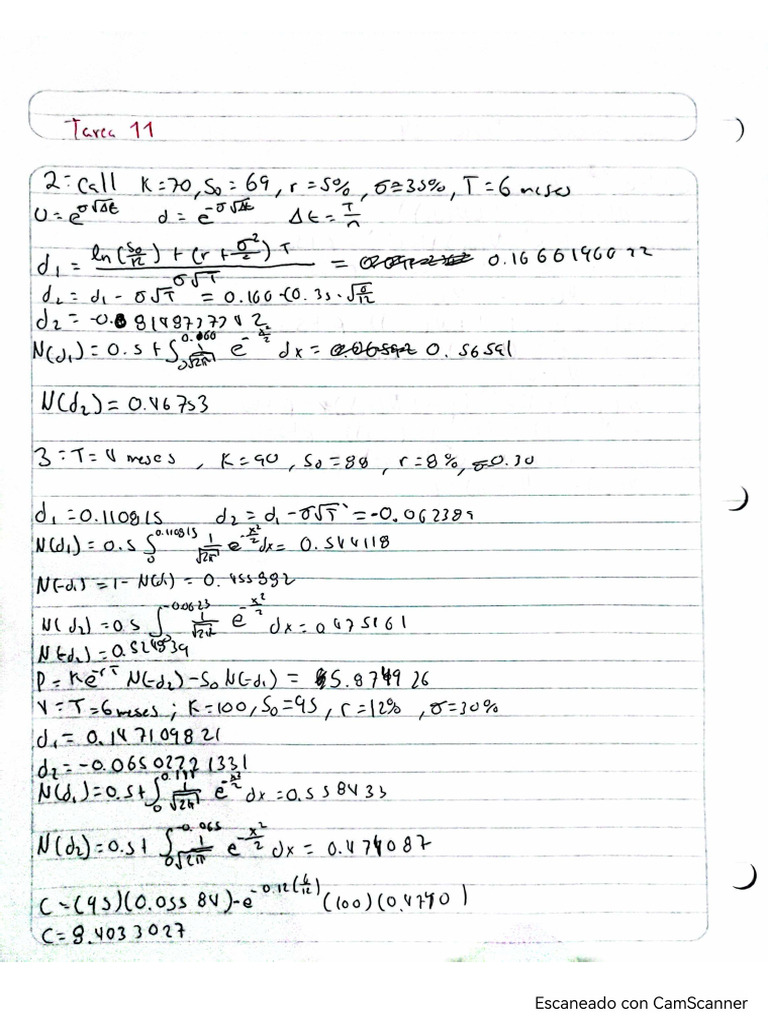 Tarea 11
2=Call K=70, S₀=69, r=5%, σ=35%, T=6 meses
U=e^{σ√Δt} d=e^{-σ√Δt} Δt=T/n
d₁=(ln(S₀/K)+(r+σ²/2)T)/(σ√T)= 0.1660196022
d₂=d₁-σ√T=0.166-(0.35·√(6/12)
d₂=-0.0814873774 2
N(d₁)=0.5+∫₀^{0.166} 1/√2π e^{-x²/2} dx= 0.56591
N(d₂)=0.46753
3=T=4 meses, K=90, S₀=88, r=8%, σ=0.30
d₁=0.110815 d₂=d₁-σ√T=-0.062389
N(d₁)=0.5∫₀^{0.110815} 1/√2π e^{-x²/2}dx=0.544118
N(-d₁)=1-N(d₁)=0.455882
N(d₂)=0.5∫^{-0.0623} 1/√2π e^{-x²/2} dx=0.475161
N(-d₂)=0.524839
P=Ke^{-rT} N(-d₂)-S₀N(-d₁)=5.874926
4=T=6 meses; K=100, S₀=95, r=12%, σ=30%
d₁=0.147109821
d₂=-0.06502221331
N(d₁)=0.5+∫₀^{0.147} 1/√2π e^{-x²/2}dx=0.558433
N(d₂)=0.5+∫₀^{-0.065} 1/√2π e^{-x²/2}dx=0.474087
C=(95)(0.05584)-e^{-0.12(6/12)}(100)(0.4740)
C=8.4033027
Escaneado con CamScanner